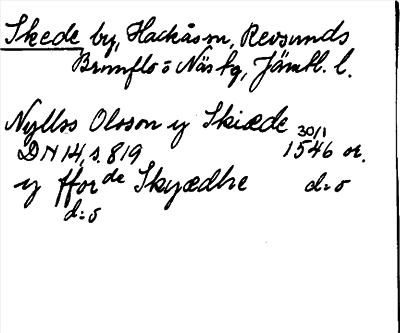 Skede by, Hackåsm, Revsunds
Brunflo o Näs tg, Jämtl. l.
Nyllss Olsson y Skiæde 30/1
DN 14, s. 819 1546 or.
y fforde Skyædhe d:o
d:o